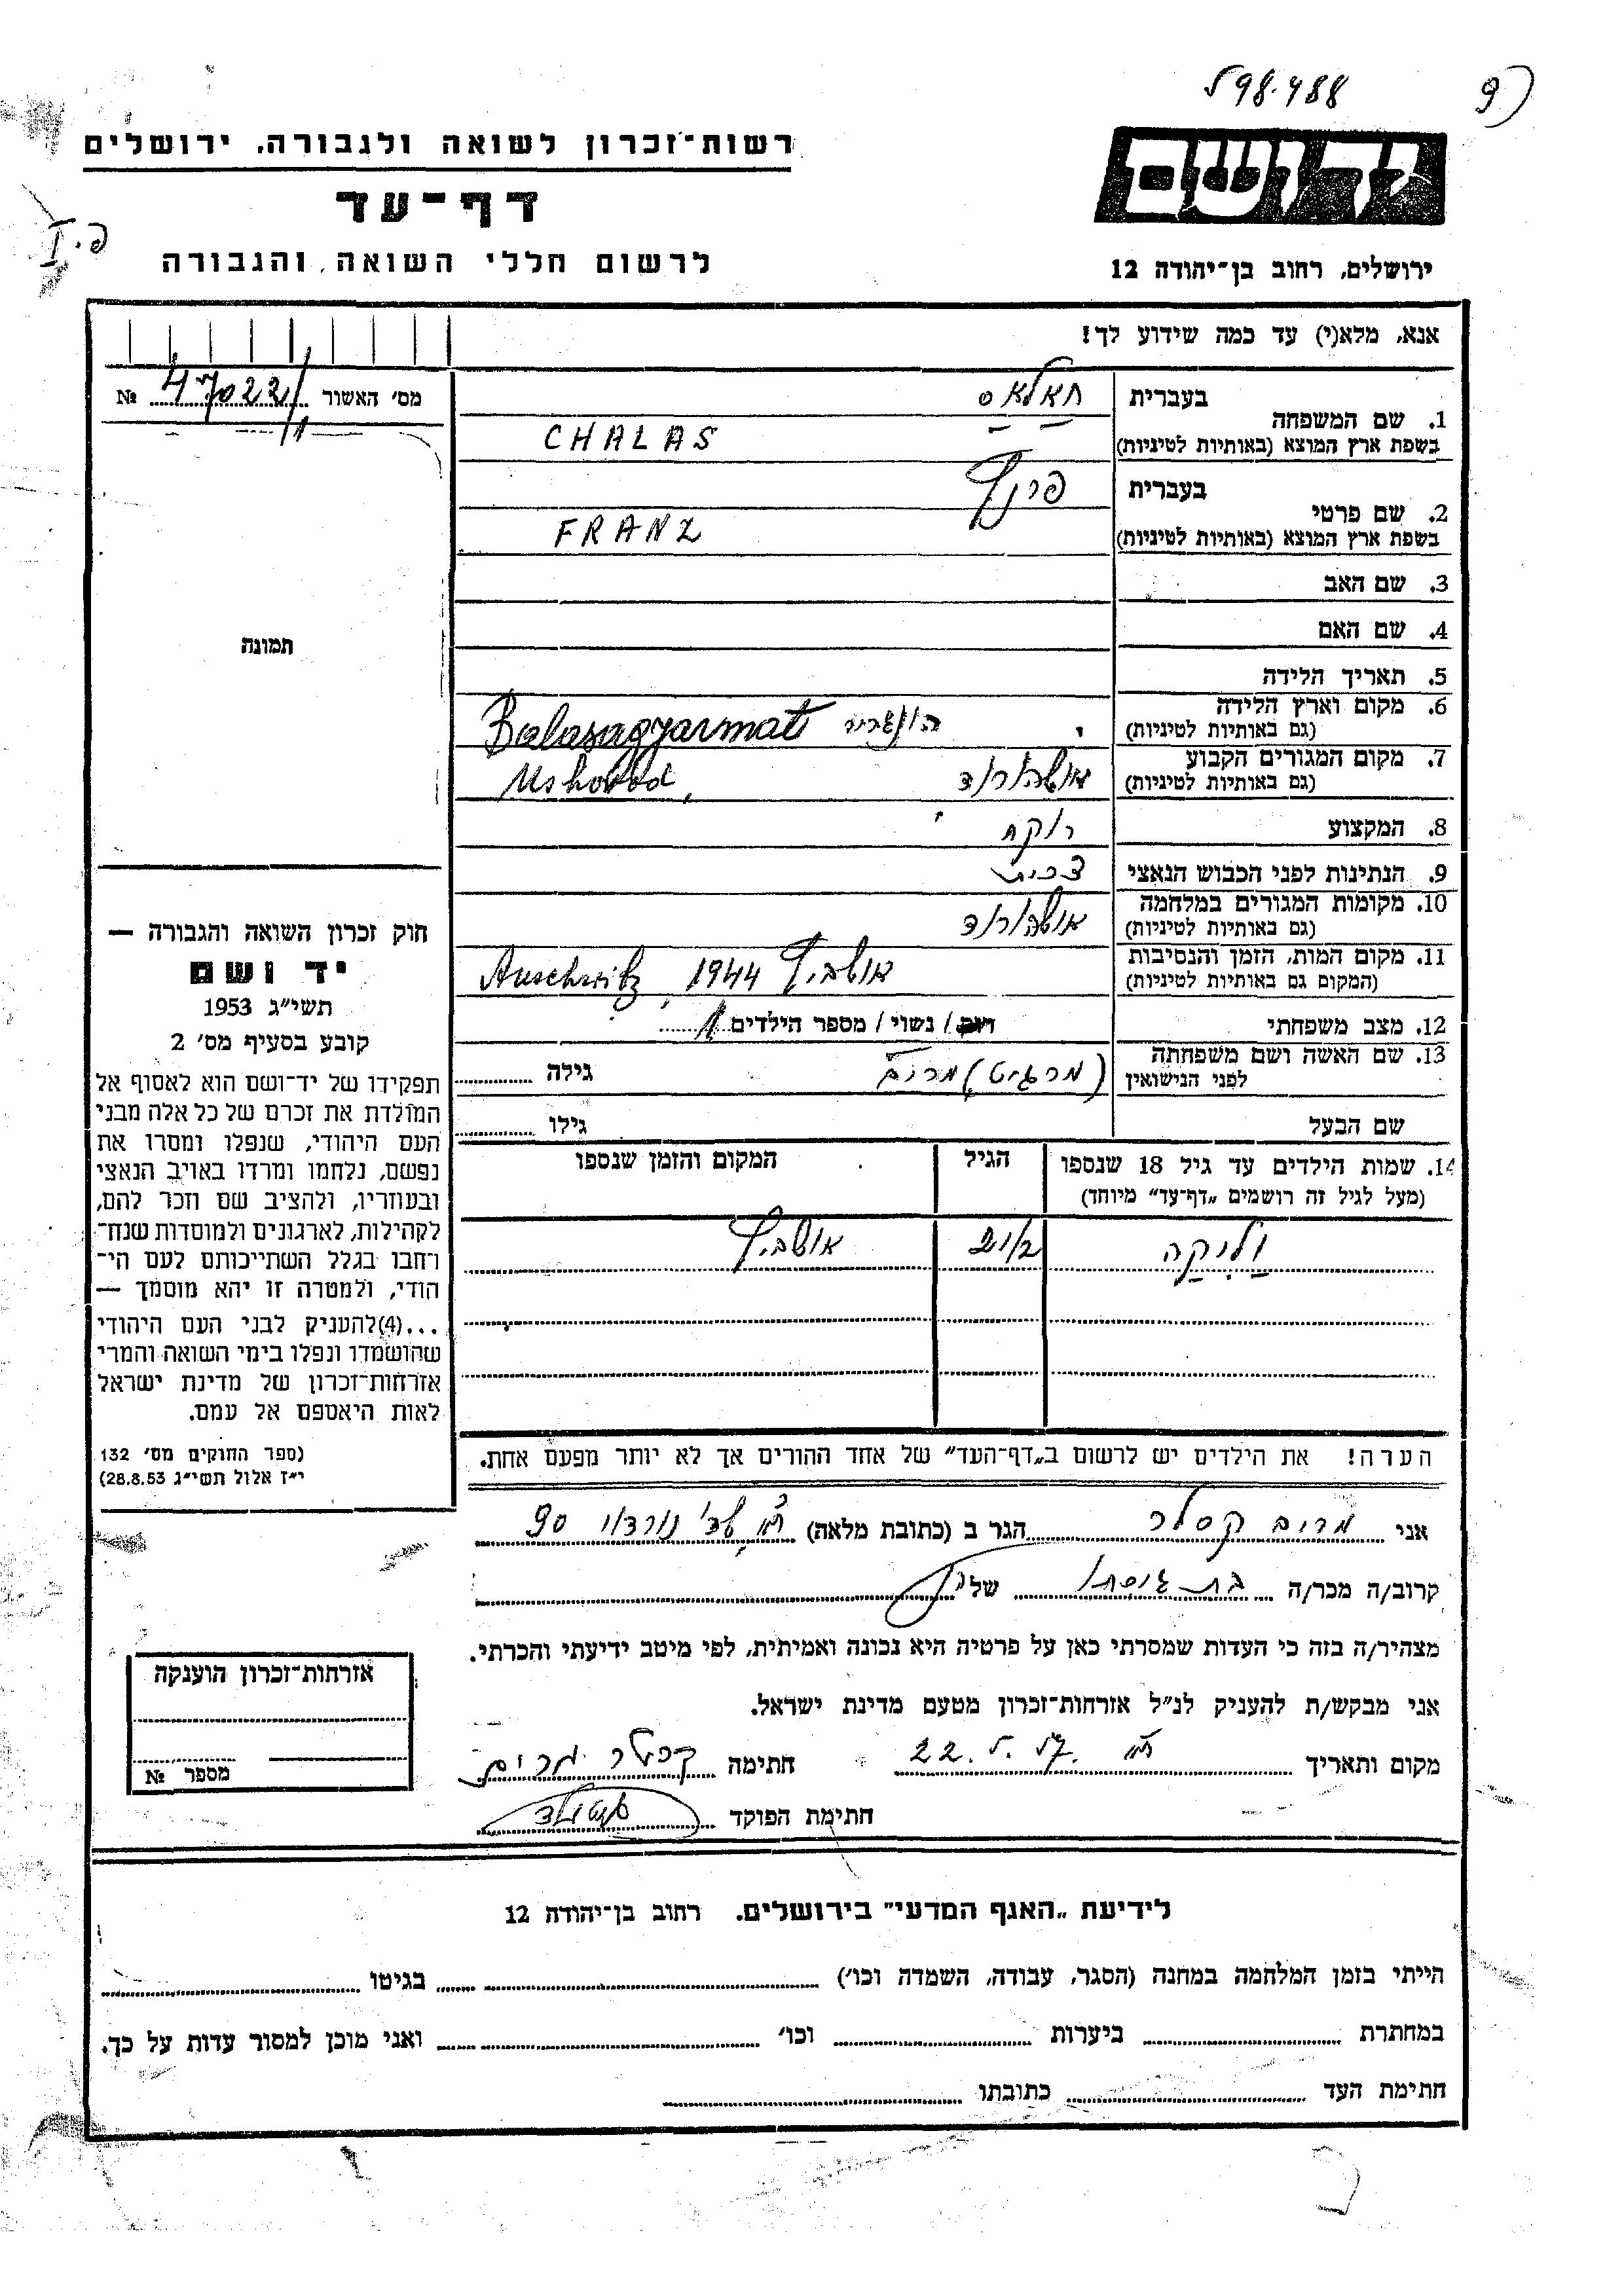 598.488
9)
רשות־זכרון לשואה ולגבורה, ירושלים
ידושם
דף־עד
פ.I
לרשום חללי השואה והגבורה
ירושלים, רחוב בן־יהודה 12
אנא, מלא(י) עד כמה שידוע לך!
מס׳ האשור 47022/ №
1. שם המשפחה בעברית חאלאס
בשפת ארץ המוצא (באותיות לטיניות) CHALAS
2. שם פרטי בעברית פרנץ
בשפת ארץ המוצא (באותיות לטיניות) FRANZ
3. שם האב
4. שם האם
תמונה
5. תאריך הלידה
6. מקום וארץ הלידה
(גם באותיות לטיניות) הונגריה Balasagyarmat
7. מקום המגורים הקבוע
(גם באותיות לטיניות) אוזשהורוד
8. המקצוע רוקח
9. הנתינות לפני הכבוש הנאצי צ׳כית
10. מקומות המגורים במלחמה
(גם באותיות לטיניות)
11. מקום המות, הזמן והנסיבות
(המקום גם באותיות לטיניות) אושביץ 1944 Auschwitz
12. מצב משפחתי רווק / נשוי / מספר הילדים 1
13. שם האשה ושם משפחתה
לפני הנישואין (מרגיט) מרים גילה
שם הבעל גילו
14. שמות הילדים עד גיל 18 שנספו הגיל המקום והזמן שנספו
(מעל לגיל זה רושמים „דף־עד״ מיוחד)
וליקה אושביץ
הערה! את הילדים יש לרשום ב„דף־העד״ של אחד ההורים אך לא יותר מפעם אחת.
חוק זכרון השואה והגבורה —
יד ושם
תשי״ג 1953
קובע בסעיף מס׳ 2
תפקידו של יד־ושם הוא לאסוף אל
המולדת את זכרם של כל אלה מבני
העם היהודי, שנפלו ומסרו את
נפשם, נלחמו ומרדו באויב הנאצי
ובעוזריו, ולהציב שם וזכר להם,
לקהילות, לארגונים ולמוסדות שנח־
רחבו בגלל השתייכותם לעם הי־
הודי, ולמטרה זו יהא מוסמך —
...(4)להעניק לבני העם היהודי
שהושמדו ונפלו בימי השואה והמרי
אזרחות־זכרון של מדינת ישראל
לאות היאספם אל עמם.
(ספר החוקים מס׳ 132
י״ז אלול תשי״ג 28.8.53)
אני מרים קסלר הגר ב (כתובת מלאה) שד׳ נורדאו 90
קרוב/ה מכר/ה בת גיסתו של
מצהיר/ה בזה כי העדות שמסרתי כאן על פרטיה היא נכונה ואמיתית, לפי מיטב ידיעתי והכרתי.
אני מבקש/ת להעניק לנ״ל אזרחות־זכרון מטעם מדינת ישראל.
מקום ותאריך 22.5.57 חתימה קסלר מרים
חתימת הפוקד
אזרחות־זכרון הוענקה
מספר №
לידיעת „האגף המדעי״ בירושלים. רחוב בן־יהודה 12
הייתי בזמן המלחמה במחנה (הסגר, עבודה, השמדה וכו׳) בגיטו
במחתרת ביערות וכו׳ ואני מוכן למסור עדות על כך.
חתימת העד כתובתו